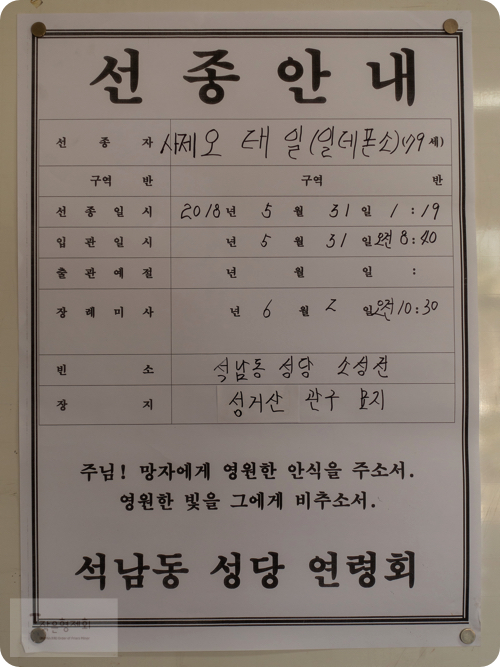 선 종 안 내
선 종 자 사제 오 태 일 (일데폰소) (79 세)
구역 반 구역 반
선 종 일 시 2018 년 5 월 31 일 1 : 19
입 관 일 시 년 5 월 31 일 오전 8:40
출 관 예 절 년 월 일 :
장 례 미 사 년 6 월 2 일 오전 10:30
빈 소 석남동 성당 소성전
장 지 성거산 관구 묘지
주님! 망자에게 영원한 안식을 주소서.
영원한 빛을 그에게 비추소서.
석남동 성당 연령회
작은형제회